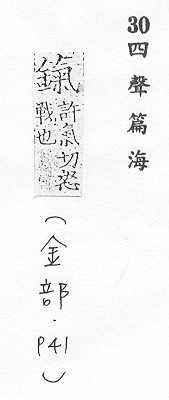 30四聲篇海
鎎許氣切怒戰也
(金部.P41)